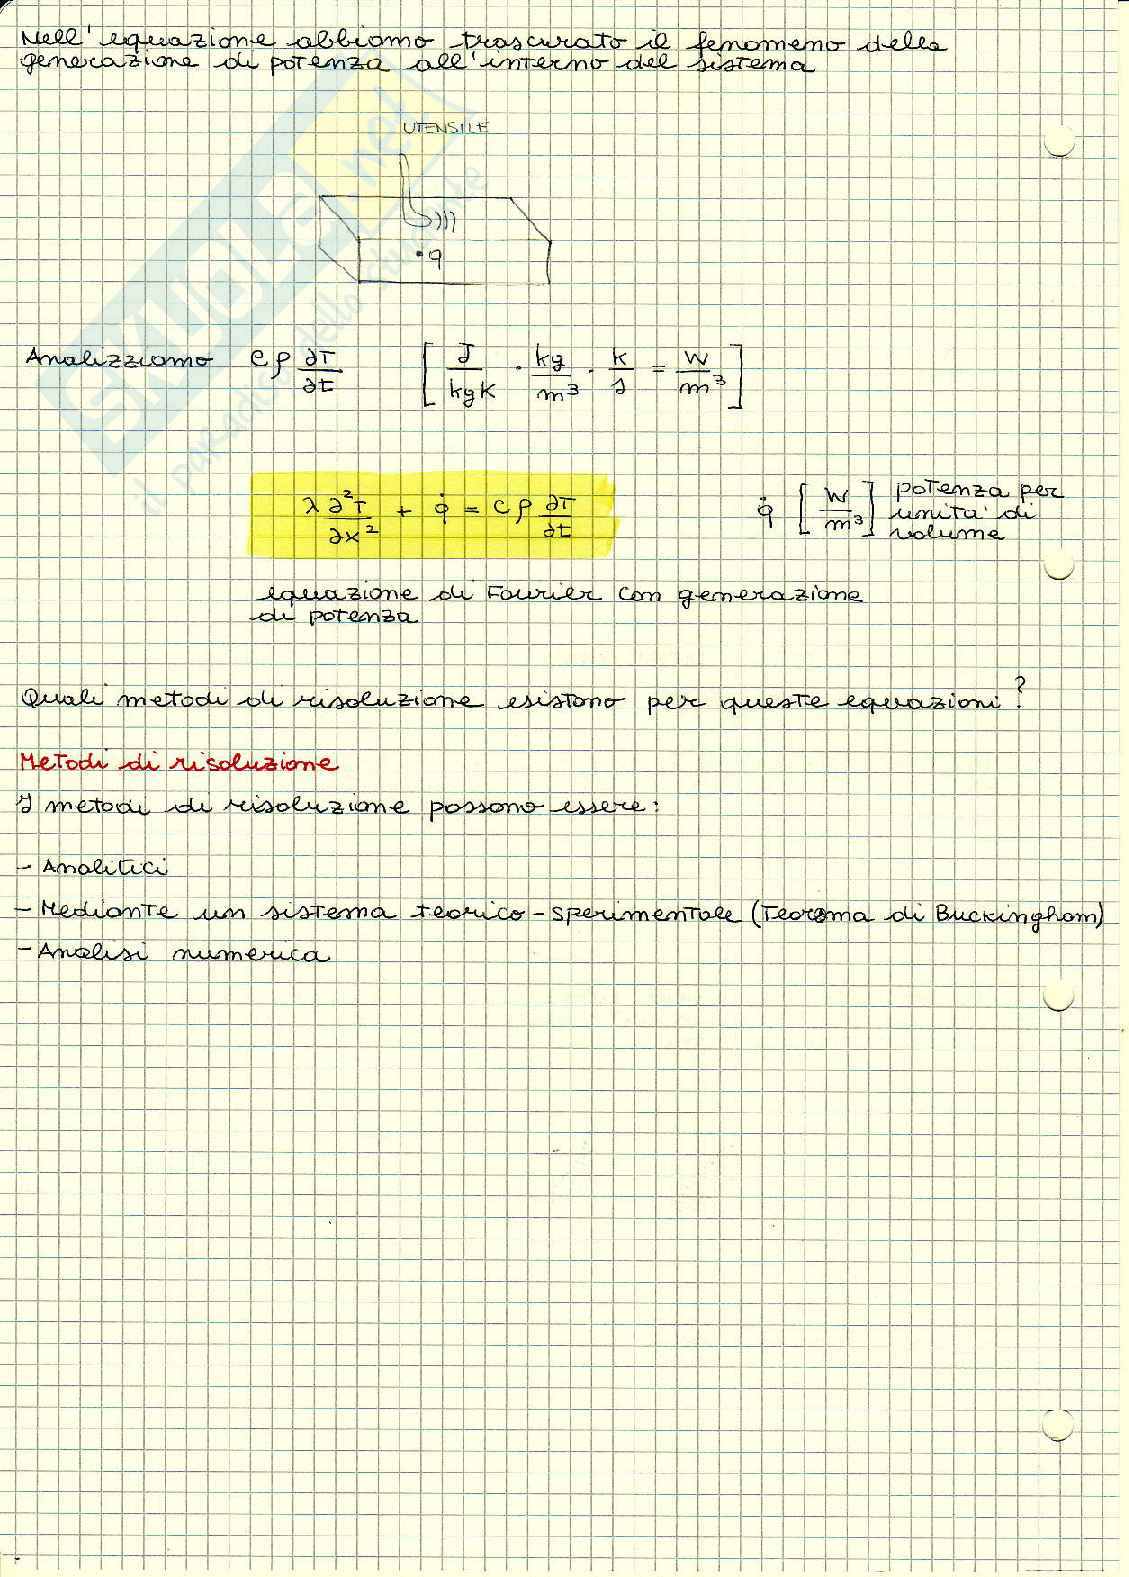 Nell'equazione abbiamo trascurato il fenomeno della
generazione di potenza all'interno del sistema
UTENSILE
q
Analizziamo cρ ∂T/∂t [J/kgK · kg/m³ · K/s = W/m³]
λ ∂²T/∂x² + q̇ = cρ ∂T/∂t q̇ [W/m³] potenza per
unita' di
volume
equazione di Fourier con generazione
di potenza
Quali metodi di risoluzione esistono per queste equazioni?
Metodi di risoluzione
I metodi di risoluzione possono essere:
- Analitici
- Mediante un sistema teorico-sperimentale (Teorema di Buckingham)
- Analisi numerica
SKUOLA.net
il paradiso dello studente